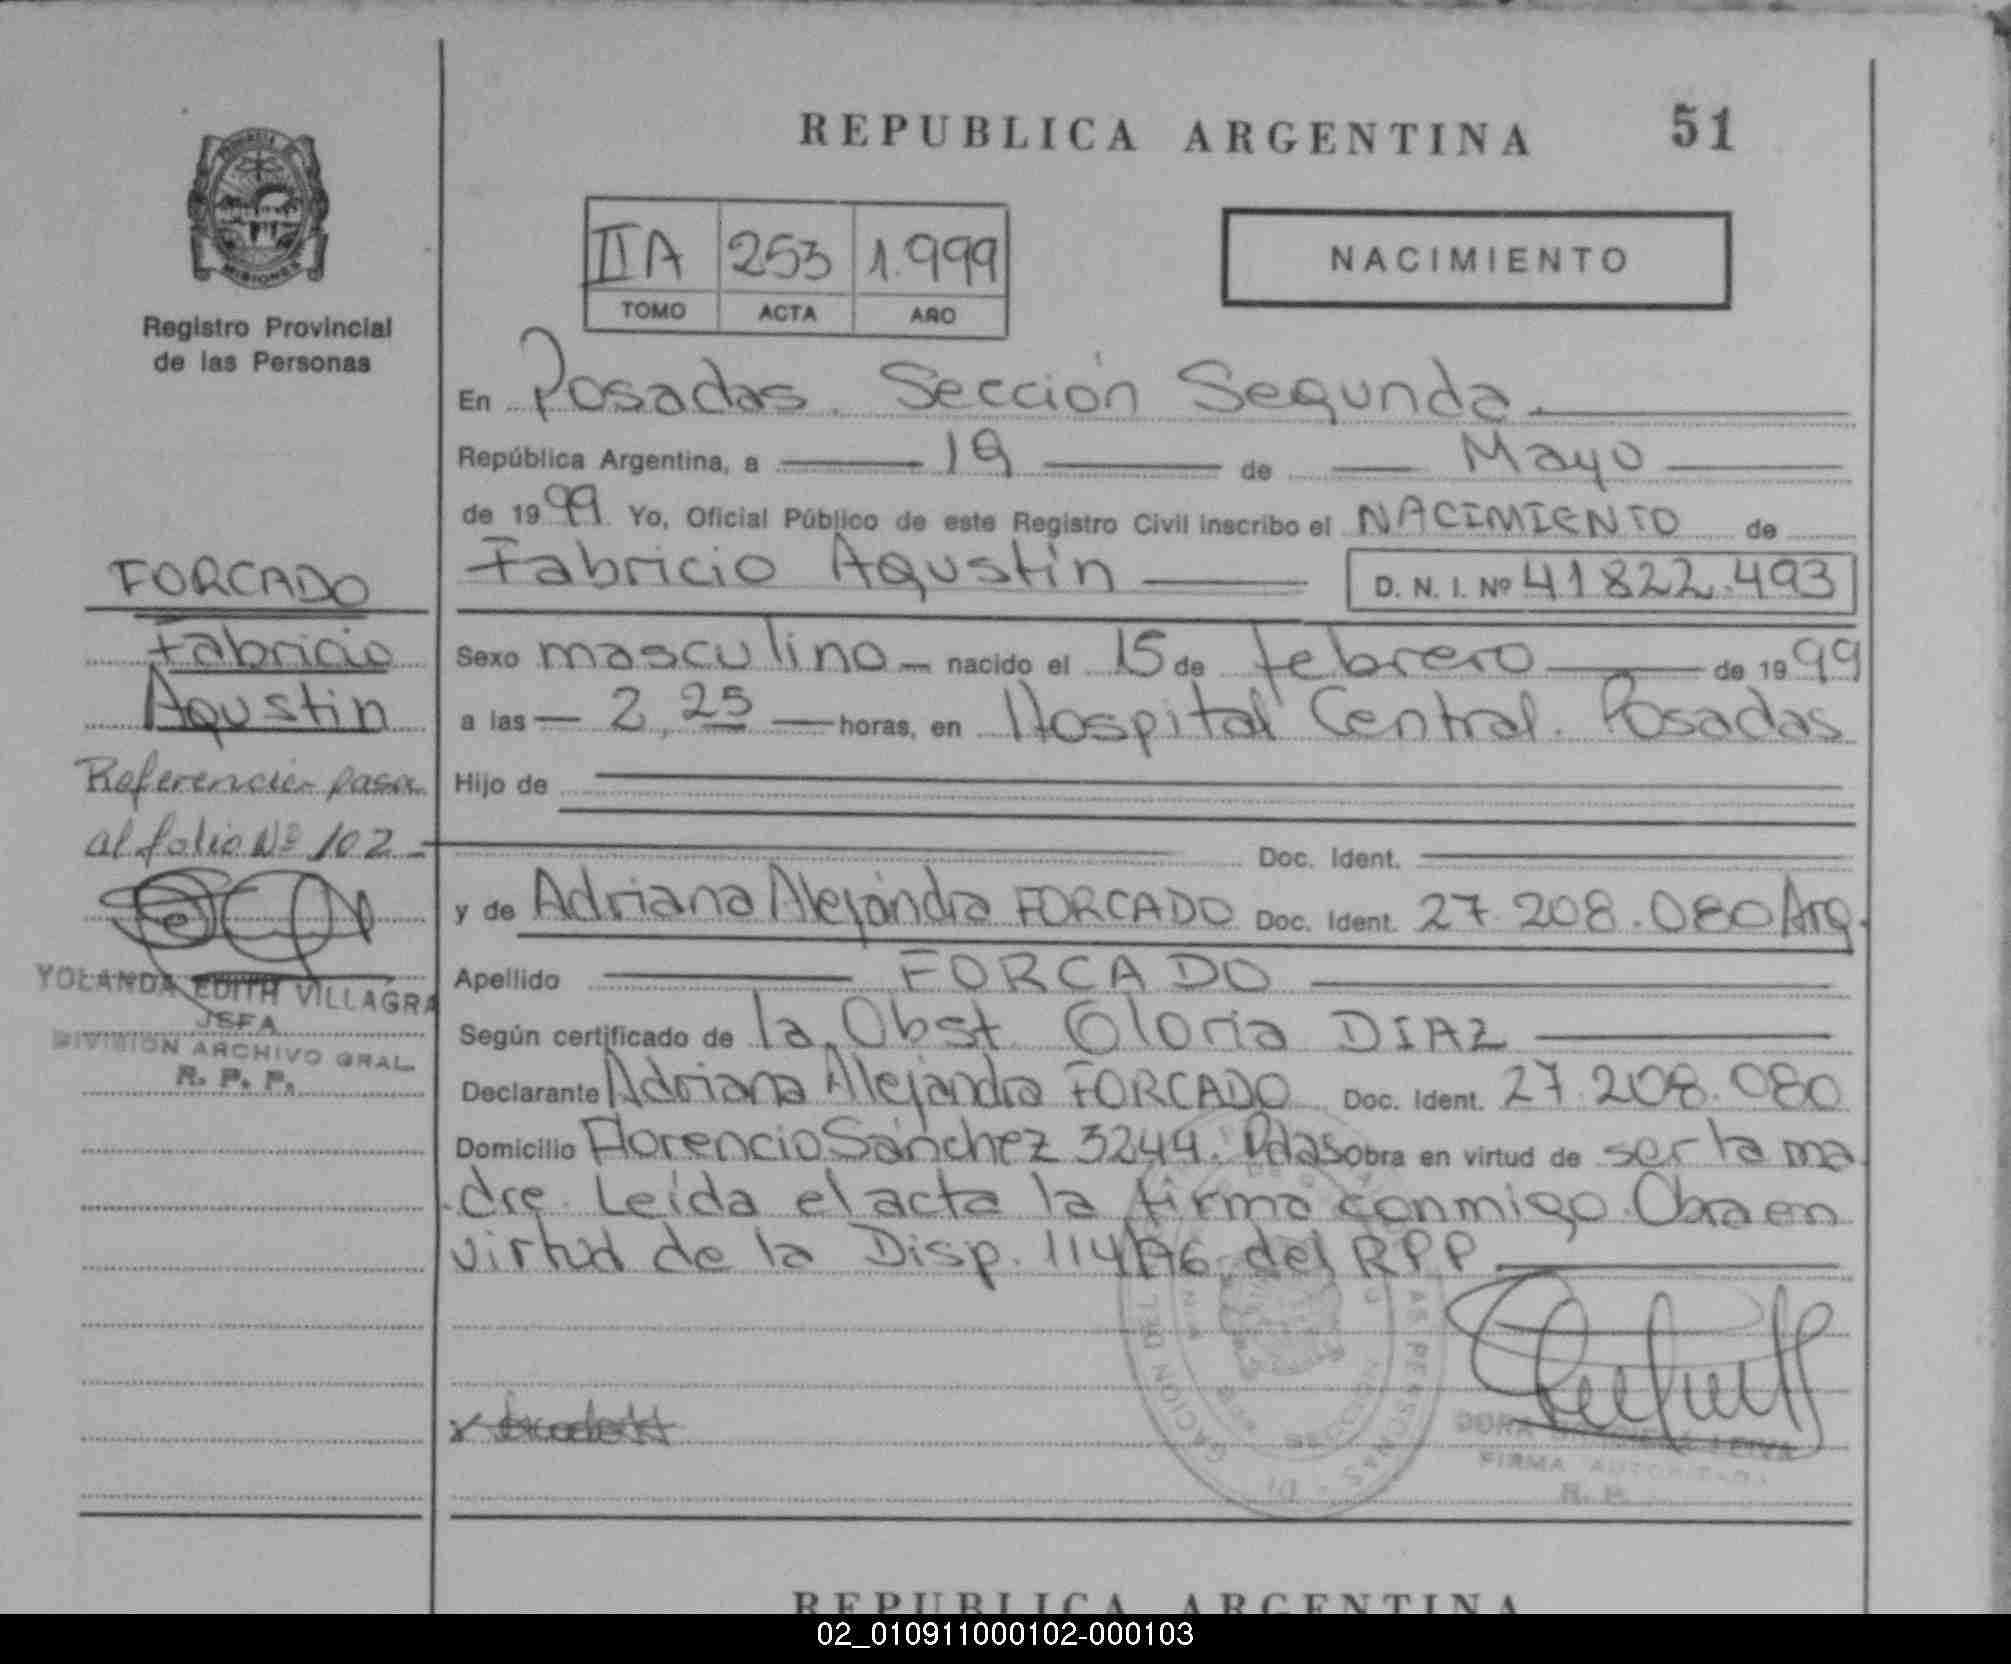 REPUBLICA ARGENTINA 51
MISIONES
Registro Provincial
de las Personas
IIA 253 1.999
TOMO ACTA AÑO
NACIMIENTO
En Posadas. Sección Segunda
República Argentina, a 19 de Mayo
de 1999 Yo, Oficial Público de este Registro Civil inscribo el NACIMIENTO de
Fabricio Agustín D. N. I. Nº 41822.493
Sexo masculino nacido el 15 de febrero de 1999
a las 2,25 horas, en Hospital Central. Posadas
Hijo de
Doc. Ident.
y de Adriana Alejandra FORCADO Doc. Ident. 27.208.080 Arg.
Apellido FORCADO
Según certificado de la Obst. Gloria DIAZ
Declarante Adriana Alejandra FORCADO Doc. Ident. 27.208.080
Domicilio Florencio Sánchez 3244. Pdas obra en virtud de ser la ma
dre. Leída el acta la firma conmigo. Obra en
virtud de la Disp. 114/96 del RPP
FORCADO
Fabricio
Agustín
Referencia pasa
al folio Nº 102
YOLANDA EDITH VILLAGRA
JEFA
DIVISION ARCHIVO GRAL.
R. P. P.
DORA LEIVA
FIRMA AUTORIZADA
R. P.
REPUBLICA ARGENTINA
02_010911000102-000103